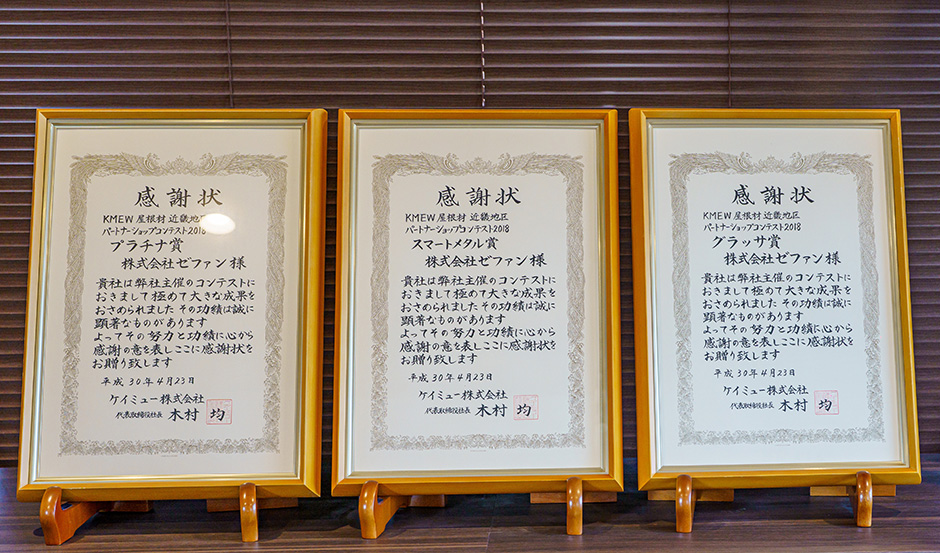 感謝状
KMEW 屋根材 近畿地区
パートナーショップコンテスト2018
プラチナ賞
株式会社ゼファン様
貴社は弊社主催のコンテストに
おきまして極めて大きな成果を
おさめられました その功績は誠に
顕著なものがあります
よってその努力と功績に心から
感謝の意を表しここに感謝状を
お贈り致します
平成30年4月23日
ケイミュー株式会社
代表取締役社長 木村 均
感謝状
KMEW 屋根材 近畿地区
パートナーショップコンテスト2018
スマートメタル賞
株式会社ゼファン様
貴社は弊社主催のコンテストに
おきまして極めて大きな成果を
おさめられました その功績は誠に
顕著なものがあります
よってその努力と功績に心から
感謝の意を表しここに感謝状を
お贈り致します
平成30年4月23日
ケイミュー株式会社
代表取締役社長 木村 均
感謝状
KMEW 屋根材 近畿地区
パートナーショップコンテスト2018
グラッサ賞
株式会社ゼファン様
貴社は弊社主催のコンテストに
おきまして極めて大きな成果を
おさめられました その功績は誠に
顕著なものがあります
よってその努力と功績に心から
感謝の意を表しここに感謝状を
お贈り致します
平成30年4月23日
ケイミュー株式会社
代表取締役社長 木村 均